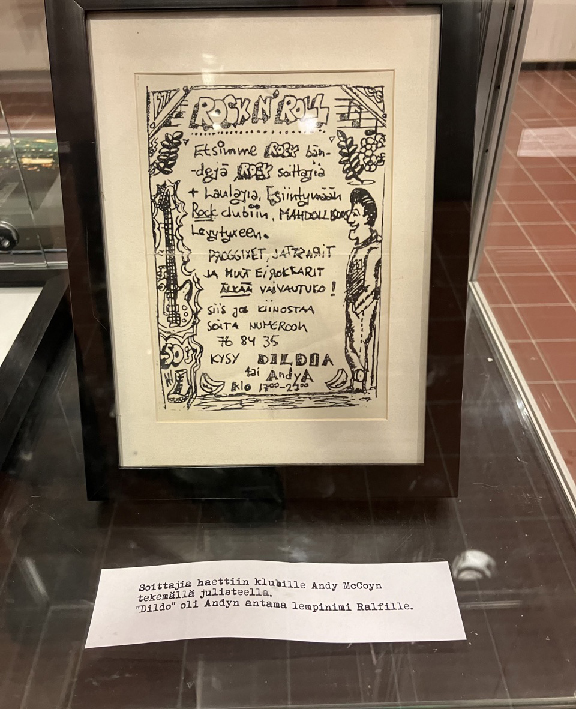 ROCK N' ROLL
Etsimme ROCK bän-
-dejä ROCK soittajia
+ Laulajia, Esiintymään
Rock clubiin, MAHDOLL.
Levytykseen.
PROGGIVET, JATSARIT
JA MUUT EI ROKKARIT
ÄLKÄÄ VAIVAUTUKO!
siis jos KIINOSTAA
SOITA NUMEROON
76 84 35
KYSY DILDIA
tai AndyA
klo 17⁰⁰-23⁰⁰
50
Soittajia haettiin klubille Andy McCoyn
tekemällä julisteella.
"Dildo" oli Andyn antama lempinimi Ralfille.